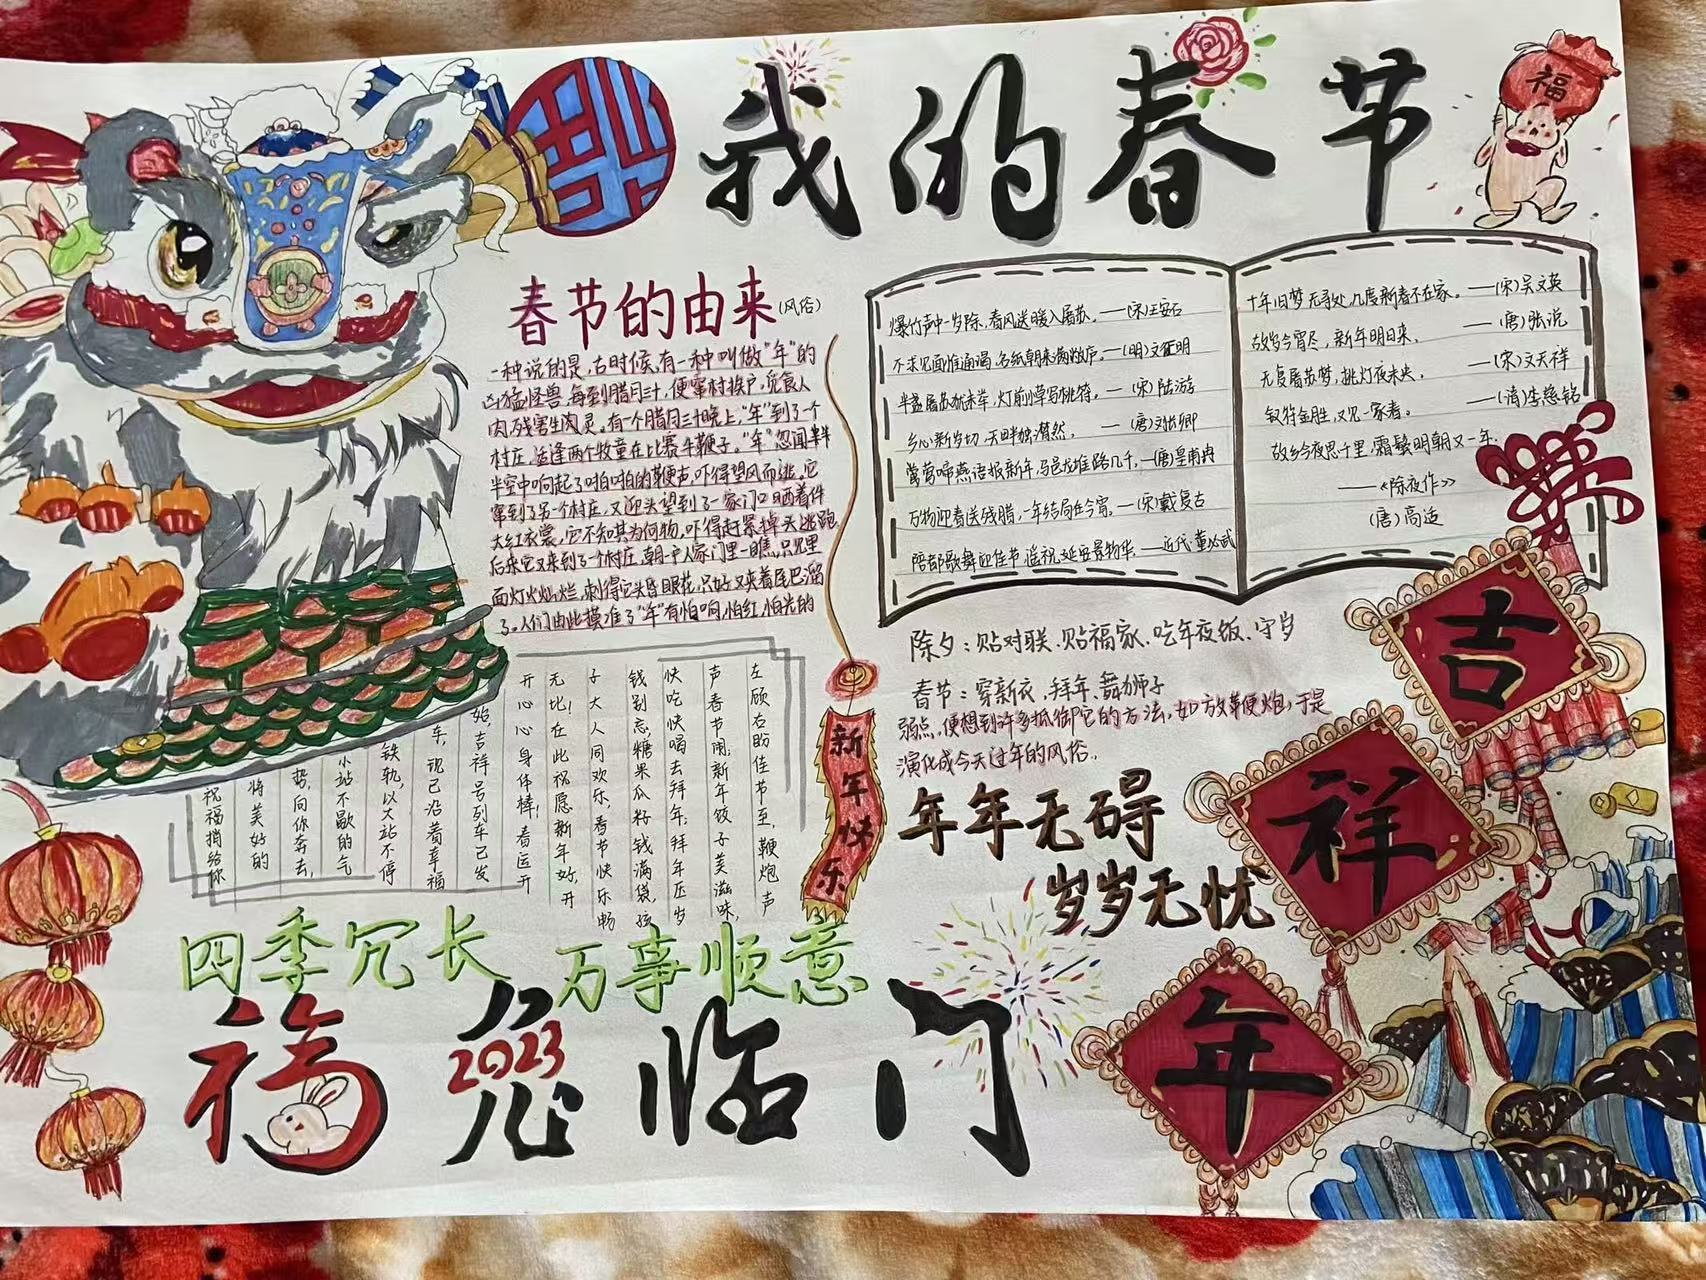 我的春节
福
春节的由来(风俗)
一种说的是,古时候,有一种叫做"年"的
凶猛怪兽,每到腊月三十,便窜村挨户,觅食人
肉,残害生灵。有一个腊月三十晚上,"年"到了一个
村庄,适逢两个牧童在比赛牛鞭子。"年"忽闻
半空中响起了啪啪的鞭声,吓得望风而逃,它
窜到了另一个村庄,又迎头望到了一家门口晒着件
大红衣裳,它不知其为何物,吓得赶紧掉头逃跑
后来它又来到了一个村庄,朝一户人家门里一瞧,只见里
面灯火灿烂,刺得它头昏眼花,只好又夹着尾巴溜
了。人们由此摸准了"年"有怕响,怕红,怕光的
爆竹声中一岁除,春风送暖入屠苏。——(宋)王安石
不求见面惟通谒,名纸朝来满敝庐。——(明)文征明
半盏屠苏犹未举,灯前小草写桃符。——(宋)陆游
乡心新岁切,天畔独潸然。——(唐)刘长卿
莺啼燕语报新年,马邑龙堆路几千。——(唐)皇甫冉
万物迎春送残腊,一年结局在今宵。——(宋)戴复古
陪都歌舞迎佳节,遥祝延安景物华。——近代·董必武
十年旧梦无寻处,几度新春不在家。——(宋)吴文英
故岁今宵尽,新年明日来。——(唐)张说
无复屠苏梦,挑灯夜未央。——(宋)文天祥
钗符金胜,又见一家春。——(清)李慈铭
故乡今夜思千里,霜鬓明朝又一年。
——《除夜作》
(唐)高适
除夕:贴对联、贴福家、吃年夜饭、守岁
春节:穿新衣、拜年、舞狮子
弱点,便想到许多抵御它的方法,如放鞭炮,于是
演化成今天过年的风俗。
左顾右盼佳节至,鞭炮声
声春节闹;新年饺子美滋味,
快吃快喝去拜年;拜年压岁
钱别忘,糖果瓜籽钱满袋,孩
子大人同欢乐,春节快乐畅
无比!在此祝愿新年好,开
开心心身体棒!春运开
始,吉祥号列车已发
车,现已沿着幸福
铁轨,以大站不停
小站不歇的气
势,向你奔去,
将美好的
祝福捎给你
新年快乐
年年无碍
岁岁无忧
四季冗长 万事顺意
福兔临门
2023
吉
祥
年